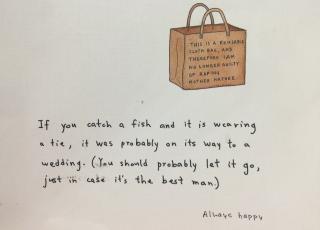 THIS IS A REUSABLE
CLOTH BAG, AND
THEREFORE I AM
NO LONGER GUILTY
OF RAPING
MOTHER NATURE.
If you catch a fish and it is wearing
a tie, it was probably on its way to a
wedding. (You should probably let it go,
just in case it's the best man)
Always happy